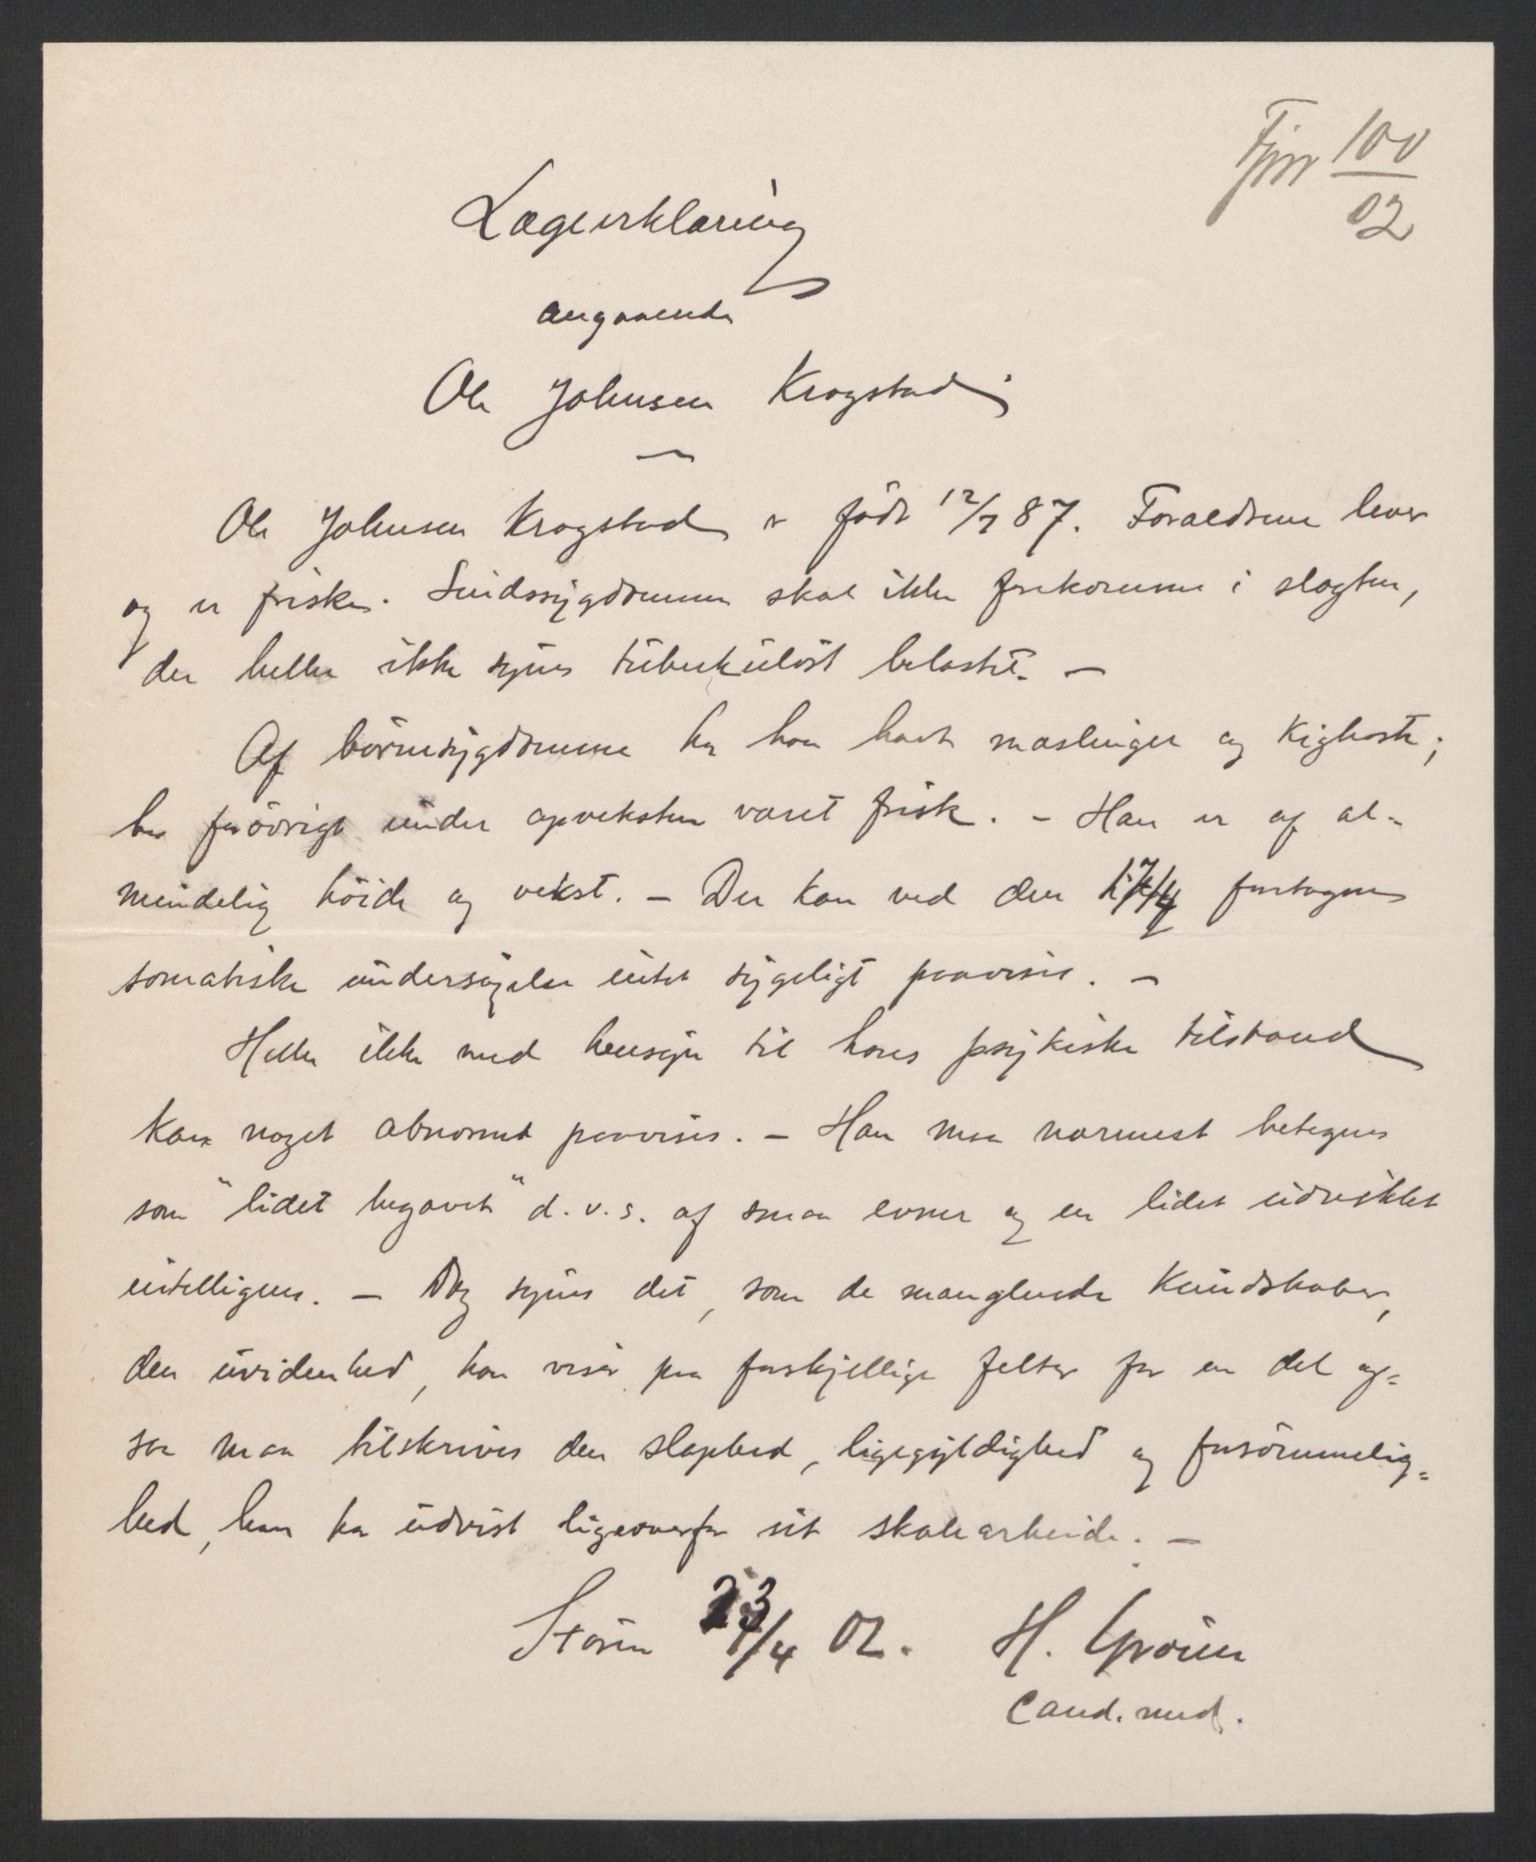 100
02
Lægeerklæring
angaaende
Ole Johnsen Krogstad
Ole Johnsen Krogstad er født 12/7 87. Forældrene lever
og er friske. Sindssygdomme skal ikke forekomme i slægten,
der heller ikke synes tuberkuløst belastet. –
Af børnesygdomme har han havt mæslinger og kighoste;
har forøvrigt under opveksten været frisk. – Han er af al-
mindelig høide og vekst. – Der kan ved den 17/4 foretagne
somatiske undersøgelse intet sygeligt paavises. –
Heller ikke med hensyn til hans psykiske tilstand
kan noget abnormt paavises. – Han maa nærmest betegnes
som "lidet begavet" d.v.s. af smaa evner og en lidet udviklet
intelligens. – Dog synes det, som de manglende kundskaber,
den uvidenhed, han viser paa forskjellige felter for en del og-
saa maa tilskrives den slaphed, ligegyldighed og forsømmelig-
hed, han har udvist ligeoverfor sit skolearbeide. –
Støren 23/4 02. H. Grøien
Cand. med.